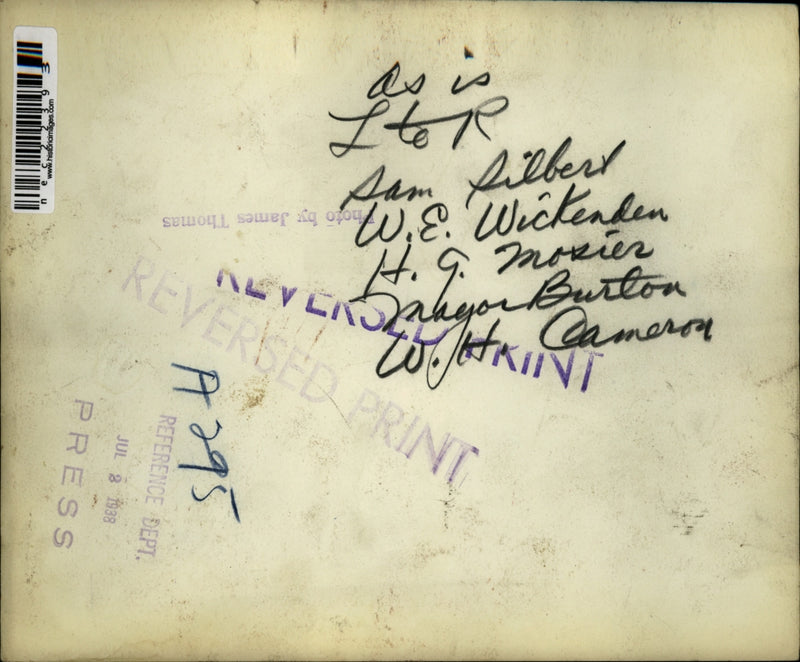 as is
L to R
Sam Silbert
W.E. Wickenden
H. G. Mosier
Mayor Burton
W. H. Cameron
Photo by James Thomas
REVERSED PRINT
REVERSED PRINT
A 295
REFERENCE DEPT.
JUL 8 1938
PRESS
www.historicimages.com
nec22393